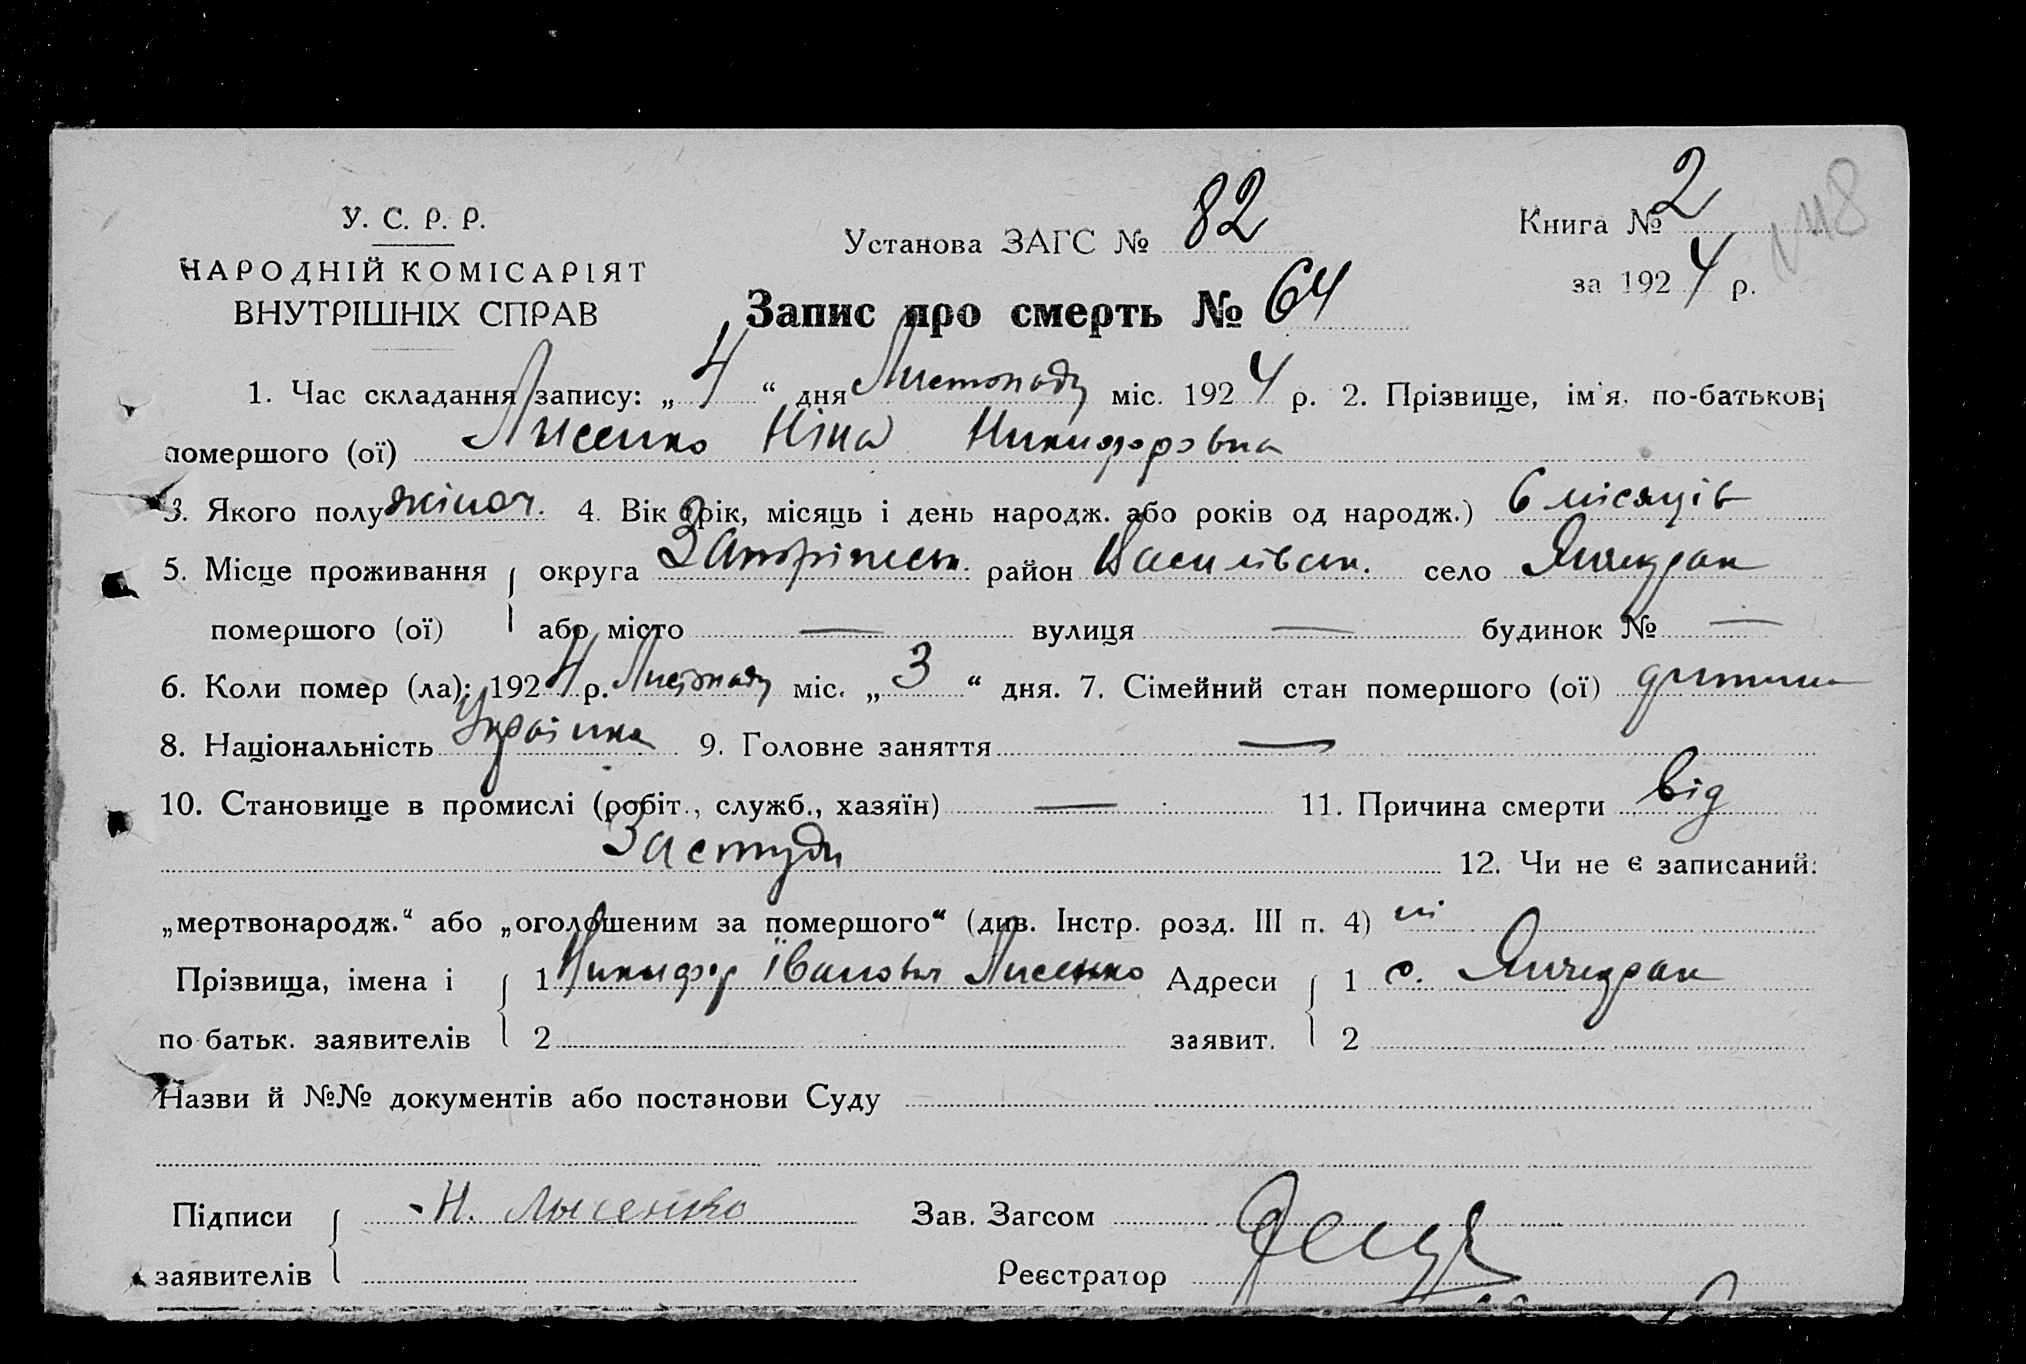 У. С. Р. Р.
НАРОДНІЙ КОМІСАРІЯТ
ВНУТРІШНІХ СПРАВ
Установа ЗАГС № 82
Книга № 2
за 1924 р.
Запис про смерть № 64
1. Час складання запису: „4“ дня Листопаду міс. 1924 р. 2. Прізвище, ім'я, по-батькові
помершого (ої) Лисенко Ніна Никифоровна
3. Якого полу жіноч. 4. Вік (рік, місяць і день народж. або років од народж.) 6 місяців
5. Місце проживання округа Запоріжськ. район Василівськ. село Янчекрак
помершого (ої) або місто — вулиця — будинок № —
6. Коли помер (ла): 1924 р. Листопаду міс. „3“ дня. 7. Сімейний стан помершого (ої) дитина
8. Національність Українка 9. Головне заняття —
10. Становище в промислі (робіт., служб., хазяїн) — 11. Причина смерти від
Застуди 12. Чи не є записаний:
„мертвонародж.“ або „оголошеним за помершого“ (див. Інстр. розд. III п. 4) ні
Прізвища, імена і 1 Никифор Іванович Лисенко Адреси 1 с. Янчекрак
по батьк. заявителів 2 заявит. 2
Назви й №№ документів або постанови Суду
Підписи Н. Лысенко Зав. Загсом
заявителів Реєстратор